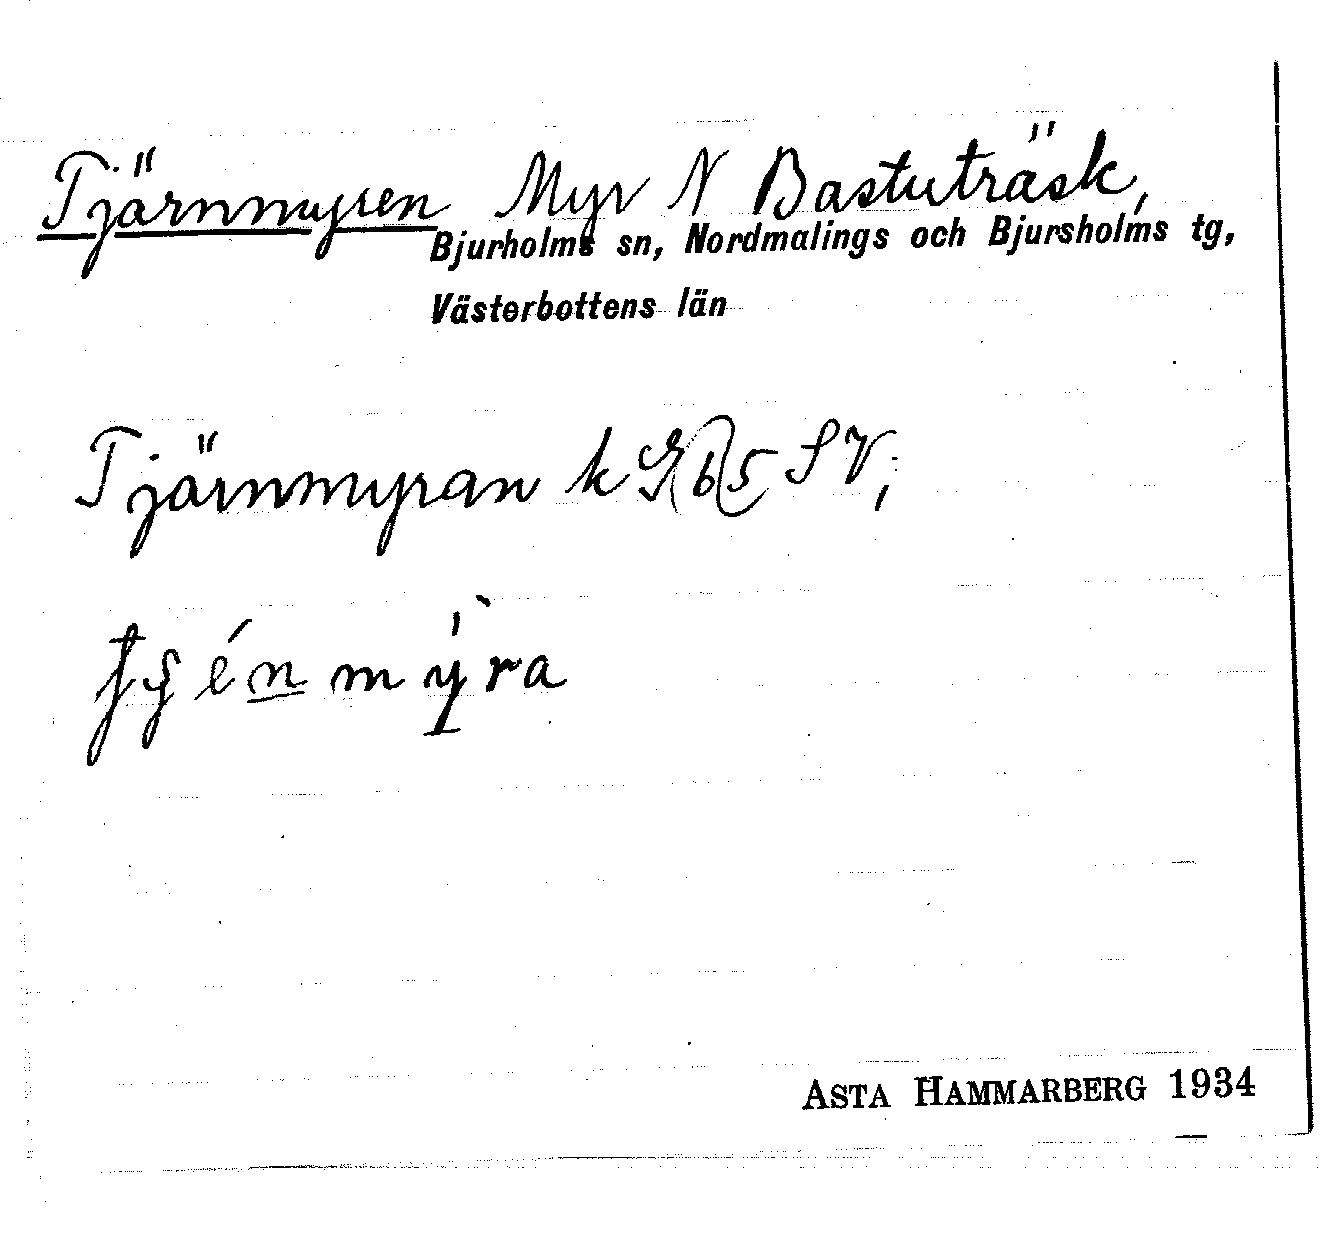 Tjärnmyren Myr N Bastuträsk,
Bjurholms sn, Nordmalings och Bjursholms tg,
Västerbottens län
Tjärnmyran k G(b5 SV;
myra
ASTA HAMMARBERG 1934